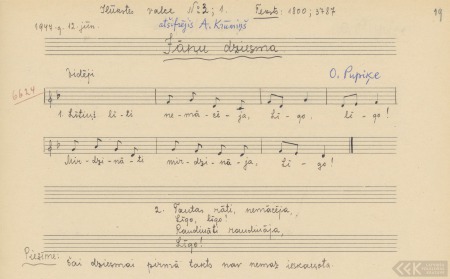 Ilūkstes valce № 2; 1. Fk. sk: 1800; 3787
19
1944. g. 12. jūn.
atšifrējis A. Krūmiņš
Jāņu dziesma
vidēji
O. Pupiķe
6624
1. Lītiņš li-ti ne-mā-cē-ja, Lī-go, lī-go!
Mir-dzi-nā-ti mir-dzi-nā-ja, Lī-go!
2. Tautas rāti, nemācēja,
Līgo, līgo!
Raudināti raudināja,
Līgo!
Piezīme: Šai dziesmai pirmā takts nav nemas ieskaņota.